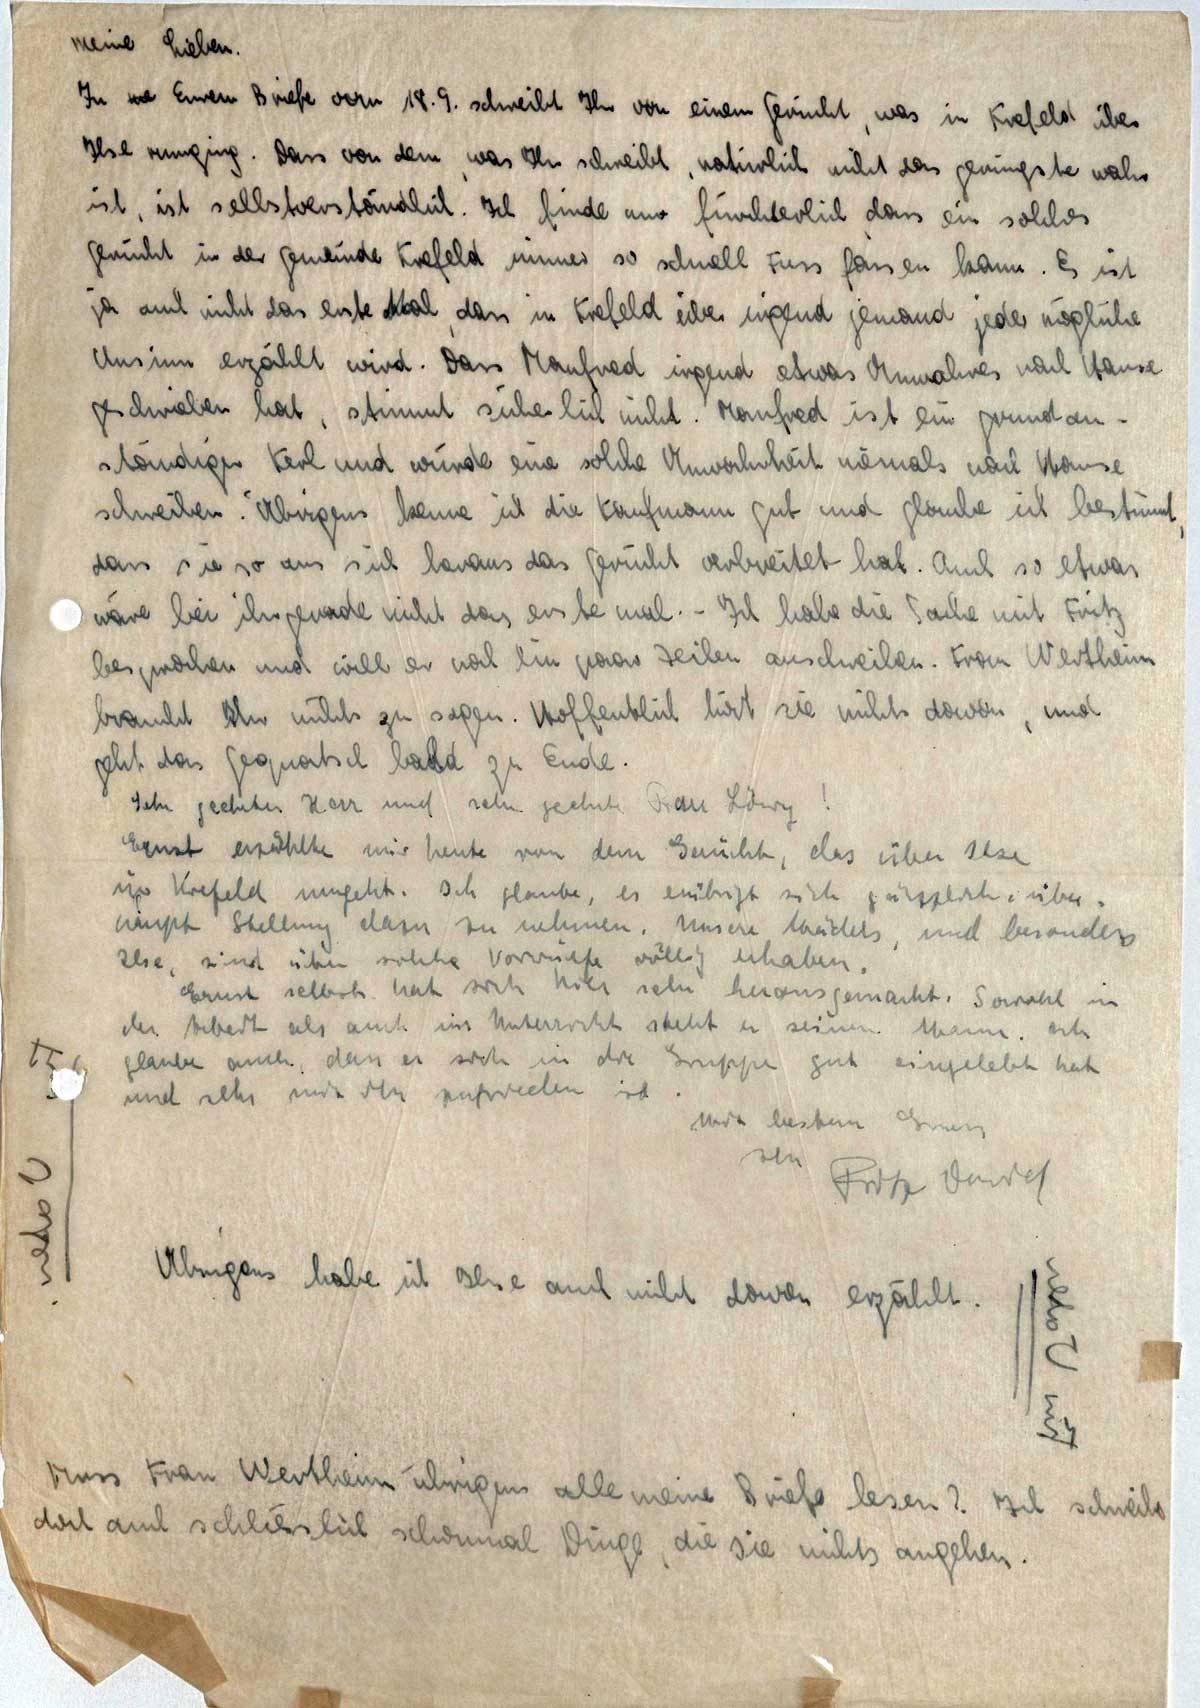 meine Lieben.
In Eurem Briefe vom 18.9. schreibt Ihr von einem Gerücht, was in Krefeld über
Ilse rumging. Dass von dem, was Ihr schreibt, natürlich nicht das geringste wahr
ist, ist selbstverständlich. Ich finde nur fürchterlich dass ein solches
Gerücht in der Gemeinde Krefeld immer so schnell Fuss fassen kann. Es ist
ja auch nicht das erste Mal, dass in Krefeld über irgend jemand jeder mögliche
Unsinn erzählt wird. Dass Manfred irgend etwas Unwahres nach Hause
geschrieben hat, stimmt sicherlich nicht. Manfred ist ein grundan-
ständiger Kerl und würde eine solche Unwahrheit niemals nach Hause
schreiben. Übrigens kenne ich die Kaufmann gut und glaube ich bestimmt,
dass sie so aus sich heraus das Gerücht verbreitet hat. Auch so etwas
wäre bei ihr gerade nicht das erste mal. - Ich habe die Sache mit Fritz
besprochen und will er noch ein paar Zeilen anschreiben. Frau Wertheim
braucht Ihr nichts zu sagen. Hoffentlich hört sie nichts davon, und
geht das Gequatsch bald zu Ende.
Sehr geehrter Herr und sehr geehrte Frau Löwy!
Ernst erzählte mir heute von dem Gerücht, das über Ilse
in Krefeld umgeht. Ich glaube, es erübrigt sich gänzlich, über-
haupt Stellung dazu zu nehmen. Unsere Mädels, und besonders
Ilse, sind über solche Vorwürfe völlig erhaben.
Ernst selbst hat sich hier sehr herausgemacht. Sowohl in
der Arbeit als auch im Unterricht steht er seinen Mann. Ich
glaube auch, dass er sich in die Gruppe gut eingelebt hat
und sehr mit ihr zufrieden ist.
Mit bestem Gruss
Ihr
Fritz David
Übrigens habe ich Ilse auch nicht davon erzählt.
Für Vater
Vater
Muss Frau Wertheim übrigens alle meine Briefe lesen? Ich schreibe
doch auch schliesslich schonmal Dinge, die sie nichts angehen.